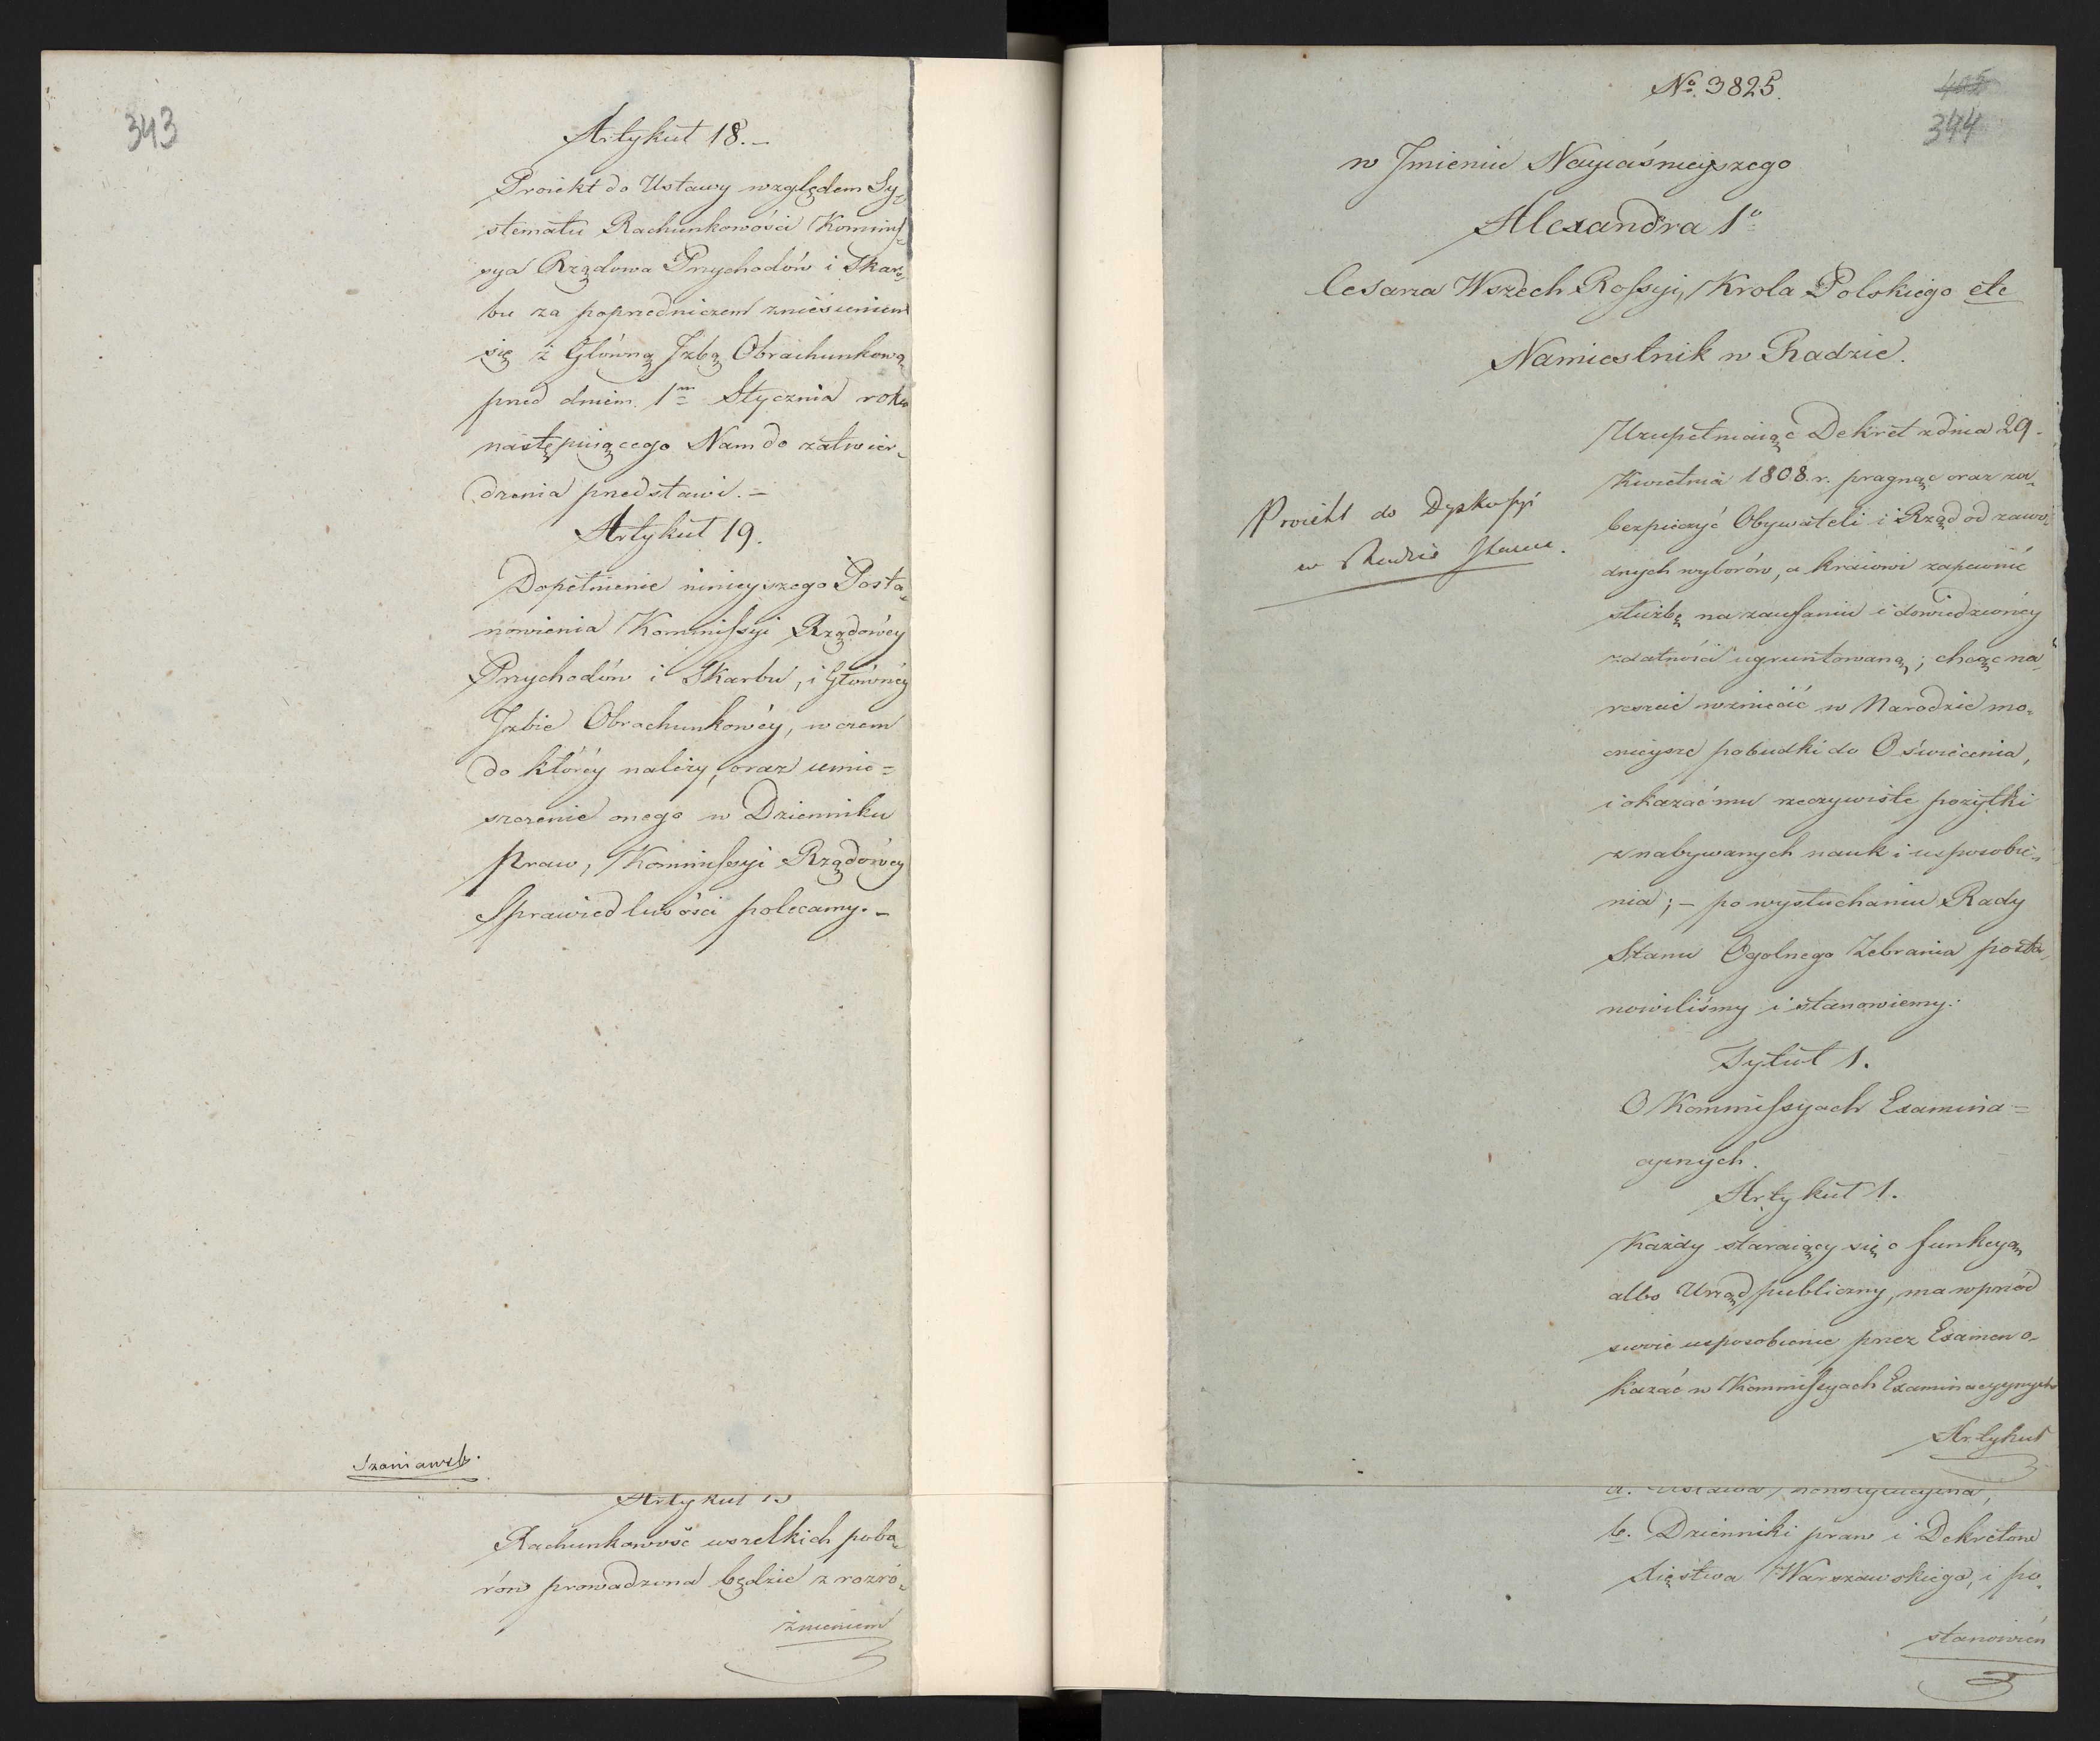 343
Artykuł 18.-
Proiekt do Ustawy względem Sy-
stematu Rachunkowości Kommis-
sya Rządowa Przychodów i Skar-
bu za poprzedniczem zniesieniem
się z Główną Izbą Obrachunkową
przed dniem 1m Stycznia roku
następuiącego Nam do zatwier-
dzenia przedstawi.-
Artykuł 19.
Dopełnienie ninieyszego Posta-
nowienia Kommissyi Rządowéy
Przychodów i Skarbu, i Głównéy
Izbie Obrachunkowéy, w czem
do któréy należy, oraz umie=
szczenie onego w Dzienniku
Praw, Kommissyi Rządowéy
Sprawiedliwości polecamy.-
Szaniawski
Artykuł 13
Rachunkowość wszelkich pobo-
rów prowadzona będzie z rozró-
żnieniem
No. 3825.
344
w Imieniu Nayiaśnieyszego
Alexandra 1o
Cesarza Wszech Rossyi, Krola Polskiego etc
Namiestnik w Radzie.
Proiekt do Dyskussyi
w Radzie Stanu.
Uzupełniaiąc Dekret z dnia 29.
Kwietnia 1808. r. pragnąc oraz za-
bezpieczyć Obywateli i Rząd od zawo-
dnych wyborów, a kraiowi zapewnić
służbę na zaufaniu i dowiedzionéy
zdatności ugruntowaną; chcąc na-
reszcie wzniecić w Narodzie mo-
cnieysze pobudki do Oświecenia,
i okazać mu rzeczywiste pożytki
z nabywanych nauk i usposobie-
nia; - po wysłuchaniu Rady
Stanu Ogolnego Zebrania posta-
nowiliśmy i stanowiemy:
Tytuł 1.
O Kommissyach Examina=
cyinych.
Artykuł 1.
Każdy staraiący się o funkcyą
albo Urząd publiczny, ma wprzód
swoie usposobienie przez Examen o-
kazać w Kommissyach Examinacyynych
Artykuł
a. Ustawa Konstytucyina,
b. Dzienniki praw i Dekretow
Xięstwa Warszawskiego, i po-
stanowień